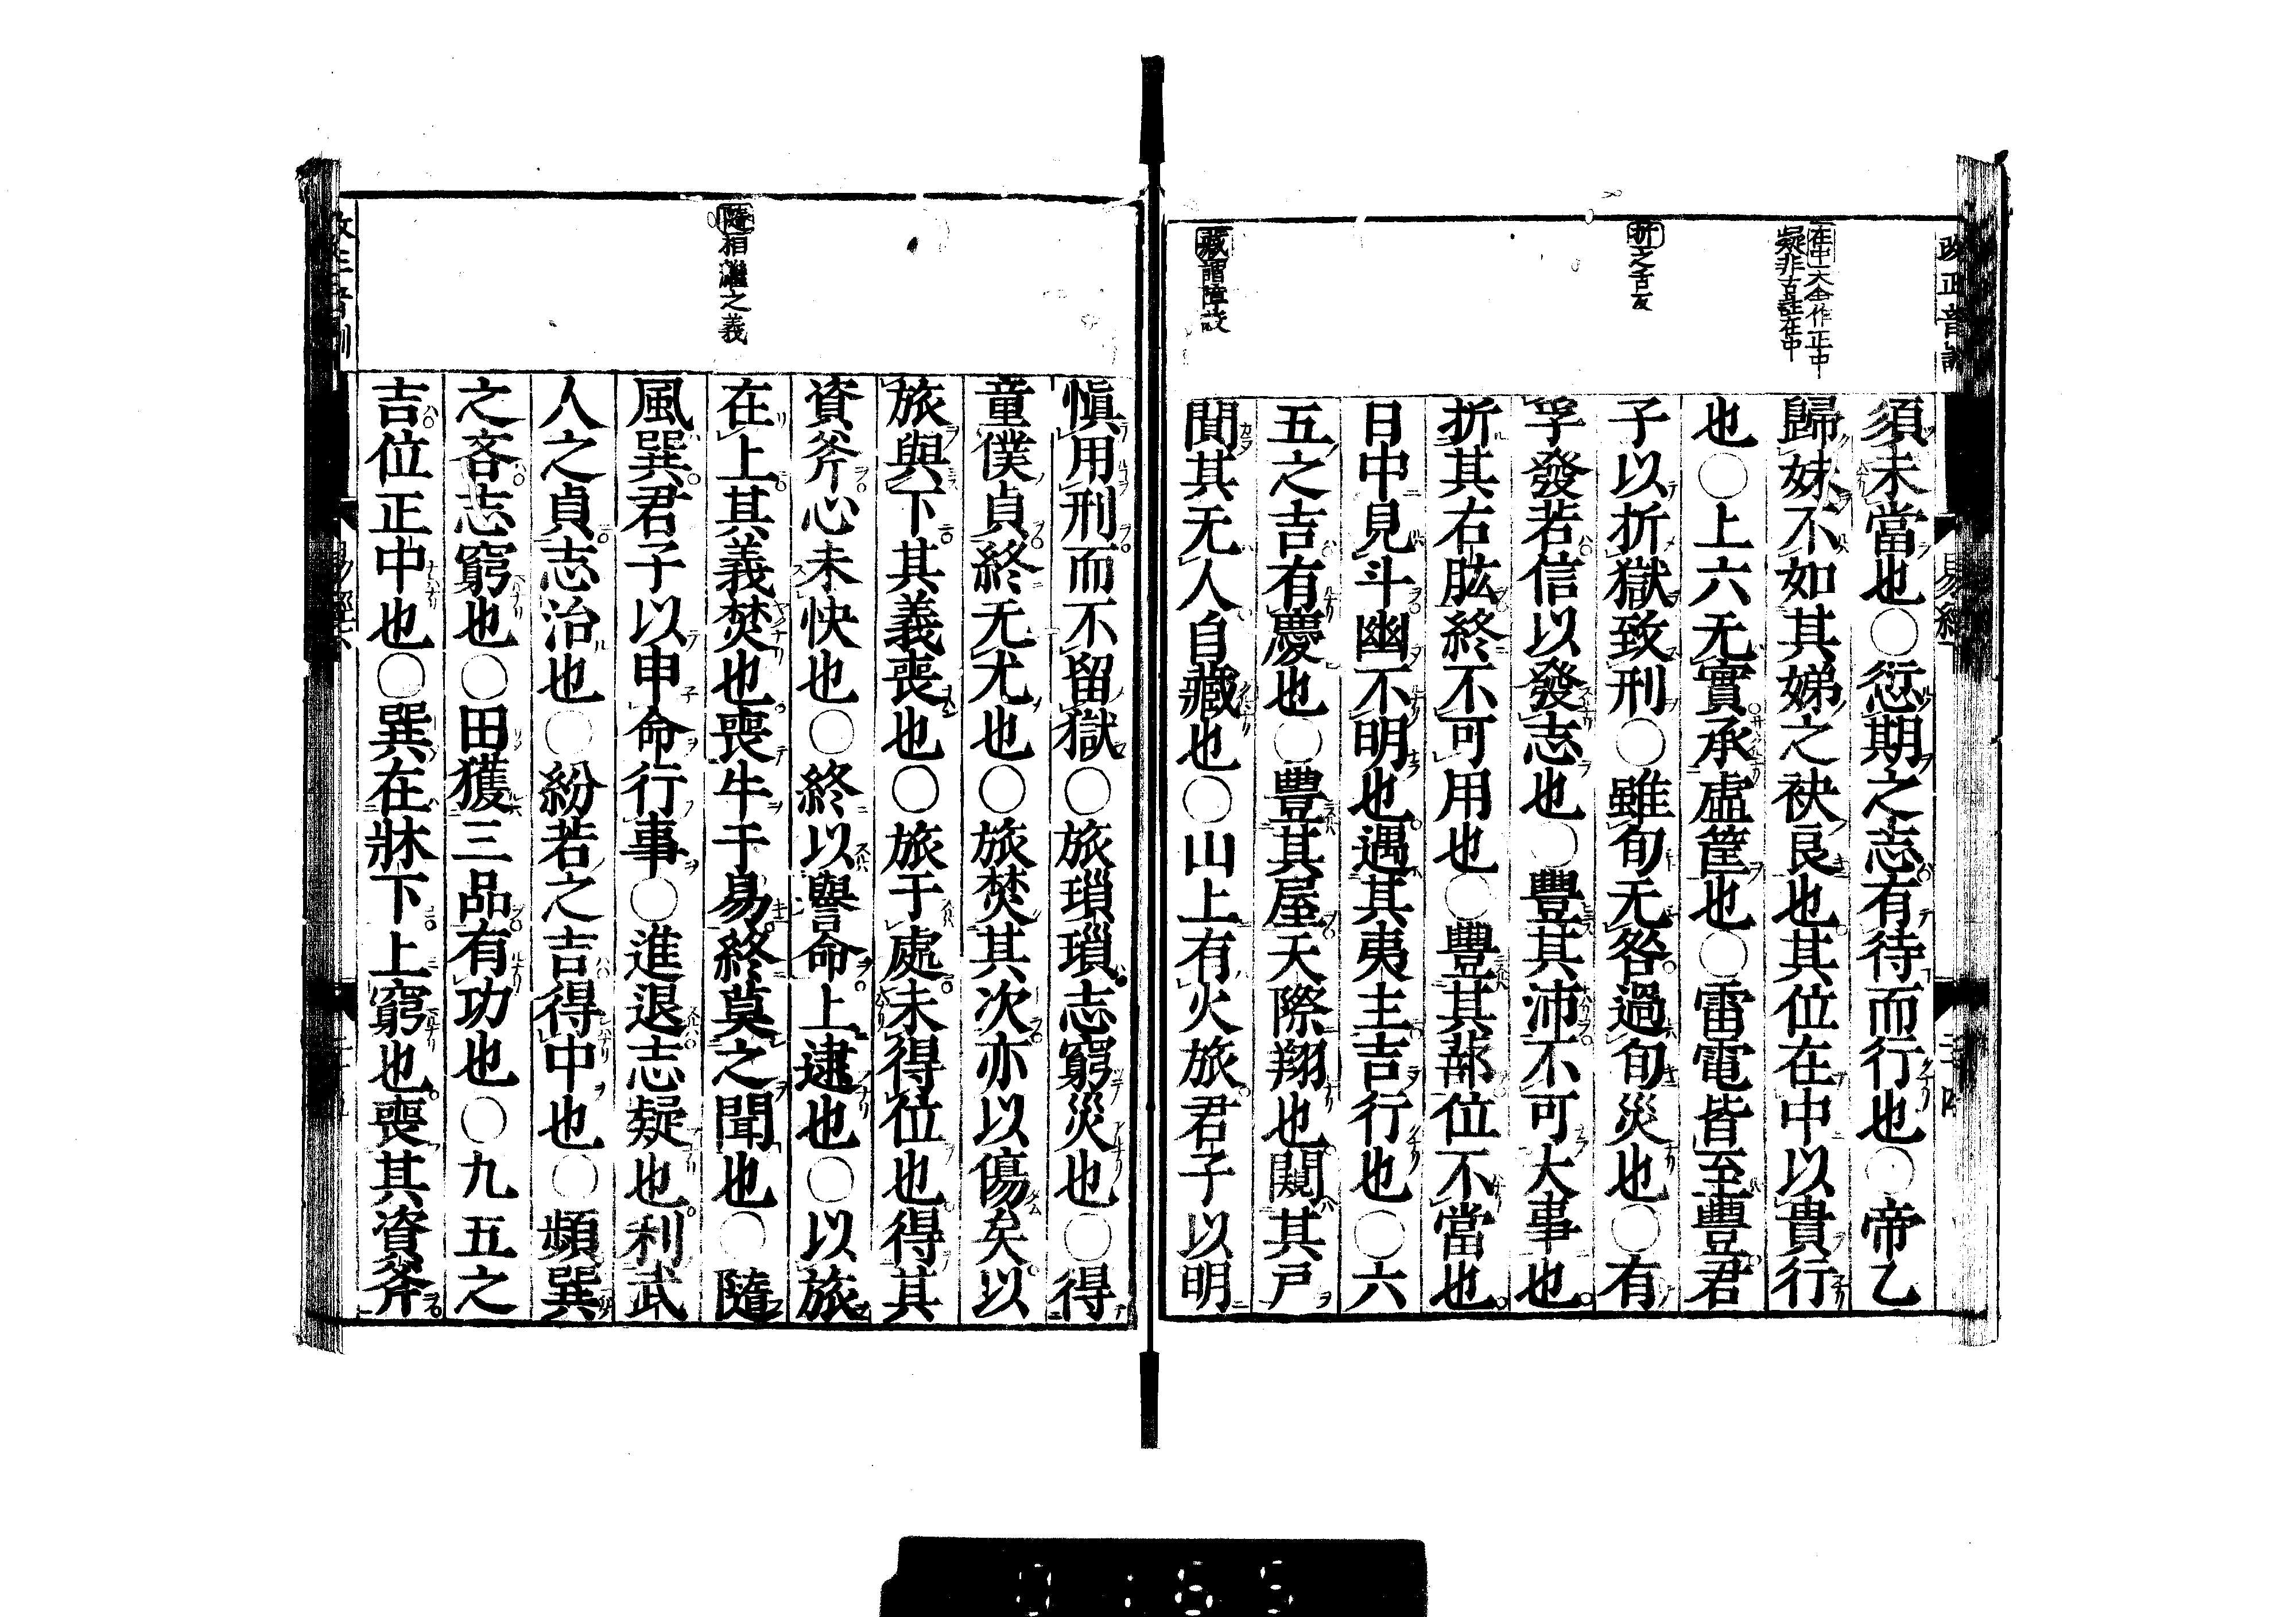 在中大全作正中
疑非古註在中
折之舌反
藏謂障蔽
須未當也○愆期之志有待而行也○帝乙
歸妹不如其娣之袂良也其位在中以貴行
也○上六无實承虛筐也○雷電皆至豐君
子以折獄致刑○雖旬无咎過旬災也○有
孚發若信以發志也○豐其沛不可大事也
折其右肱終不可用也○豐其蔀位不當也
日中見斗幽不明也遇其夷主吉行也○六
五之吉有慶也○豐其屋天際翔也闚其戸
闃其无人自藏也○山上有火旅君子以明
隨相繼之義
愼用刑而不留獄○旅瑣瑣志窮災也○得
童僕貞終无尤也○旅焚其次亦以傷矣以
旅與下其義喪也○旅于處未得位也得其
資斧心未快也○終以譽命上逮也○以旅
在上其義焚也喪牛于易終莫之聞也○隨
風巽君子以申命行事○進退志疑也利武
人之貞志治也○紛若之吉得中也○頻巽
之吝志窮也○田獲三品有功也○九五之
吉位正中也○巽在牀下上窮也喪其資斧
0165